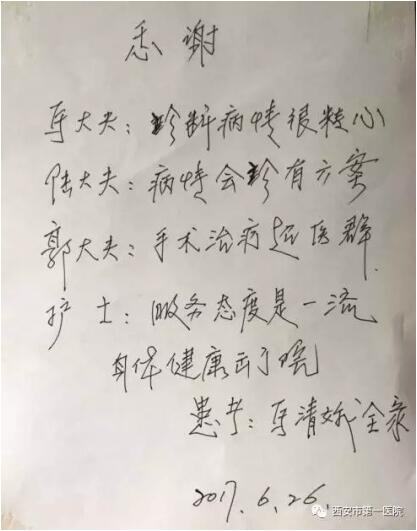 感谢
马大夫：诊断病情很精心
陆大夫：病情会诊有方案
郭大夫：手术治疗超医群
护士：服务态度是一流
身体健康出了院
患者：马清 全家
2017.6.26.
西安市第一医院